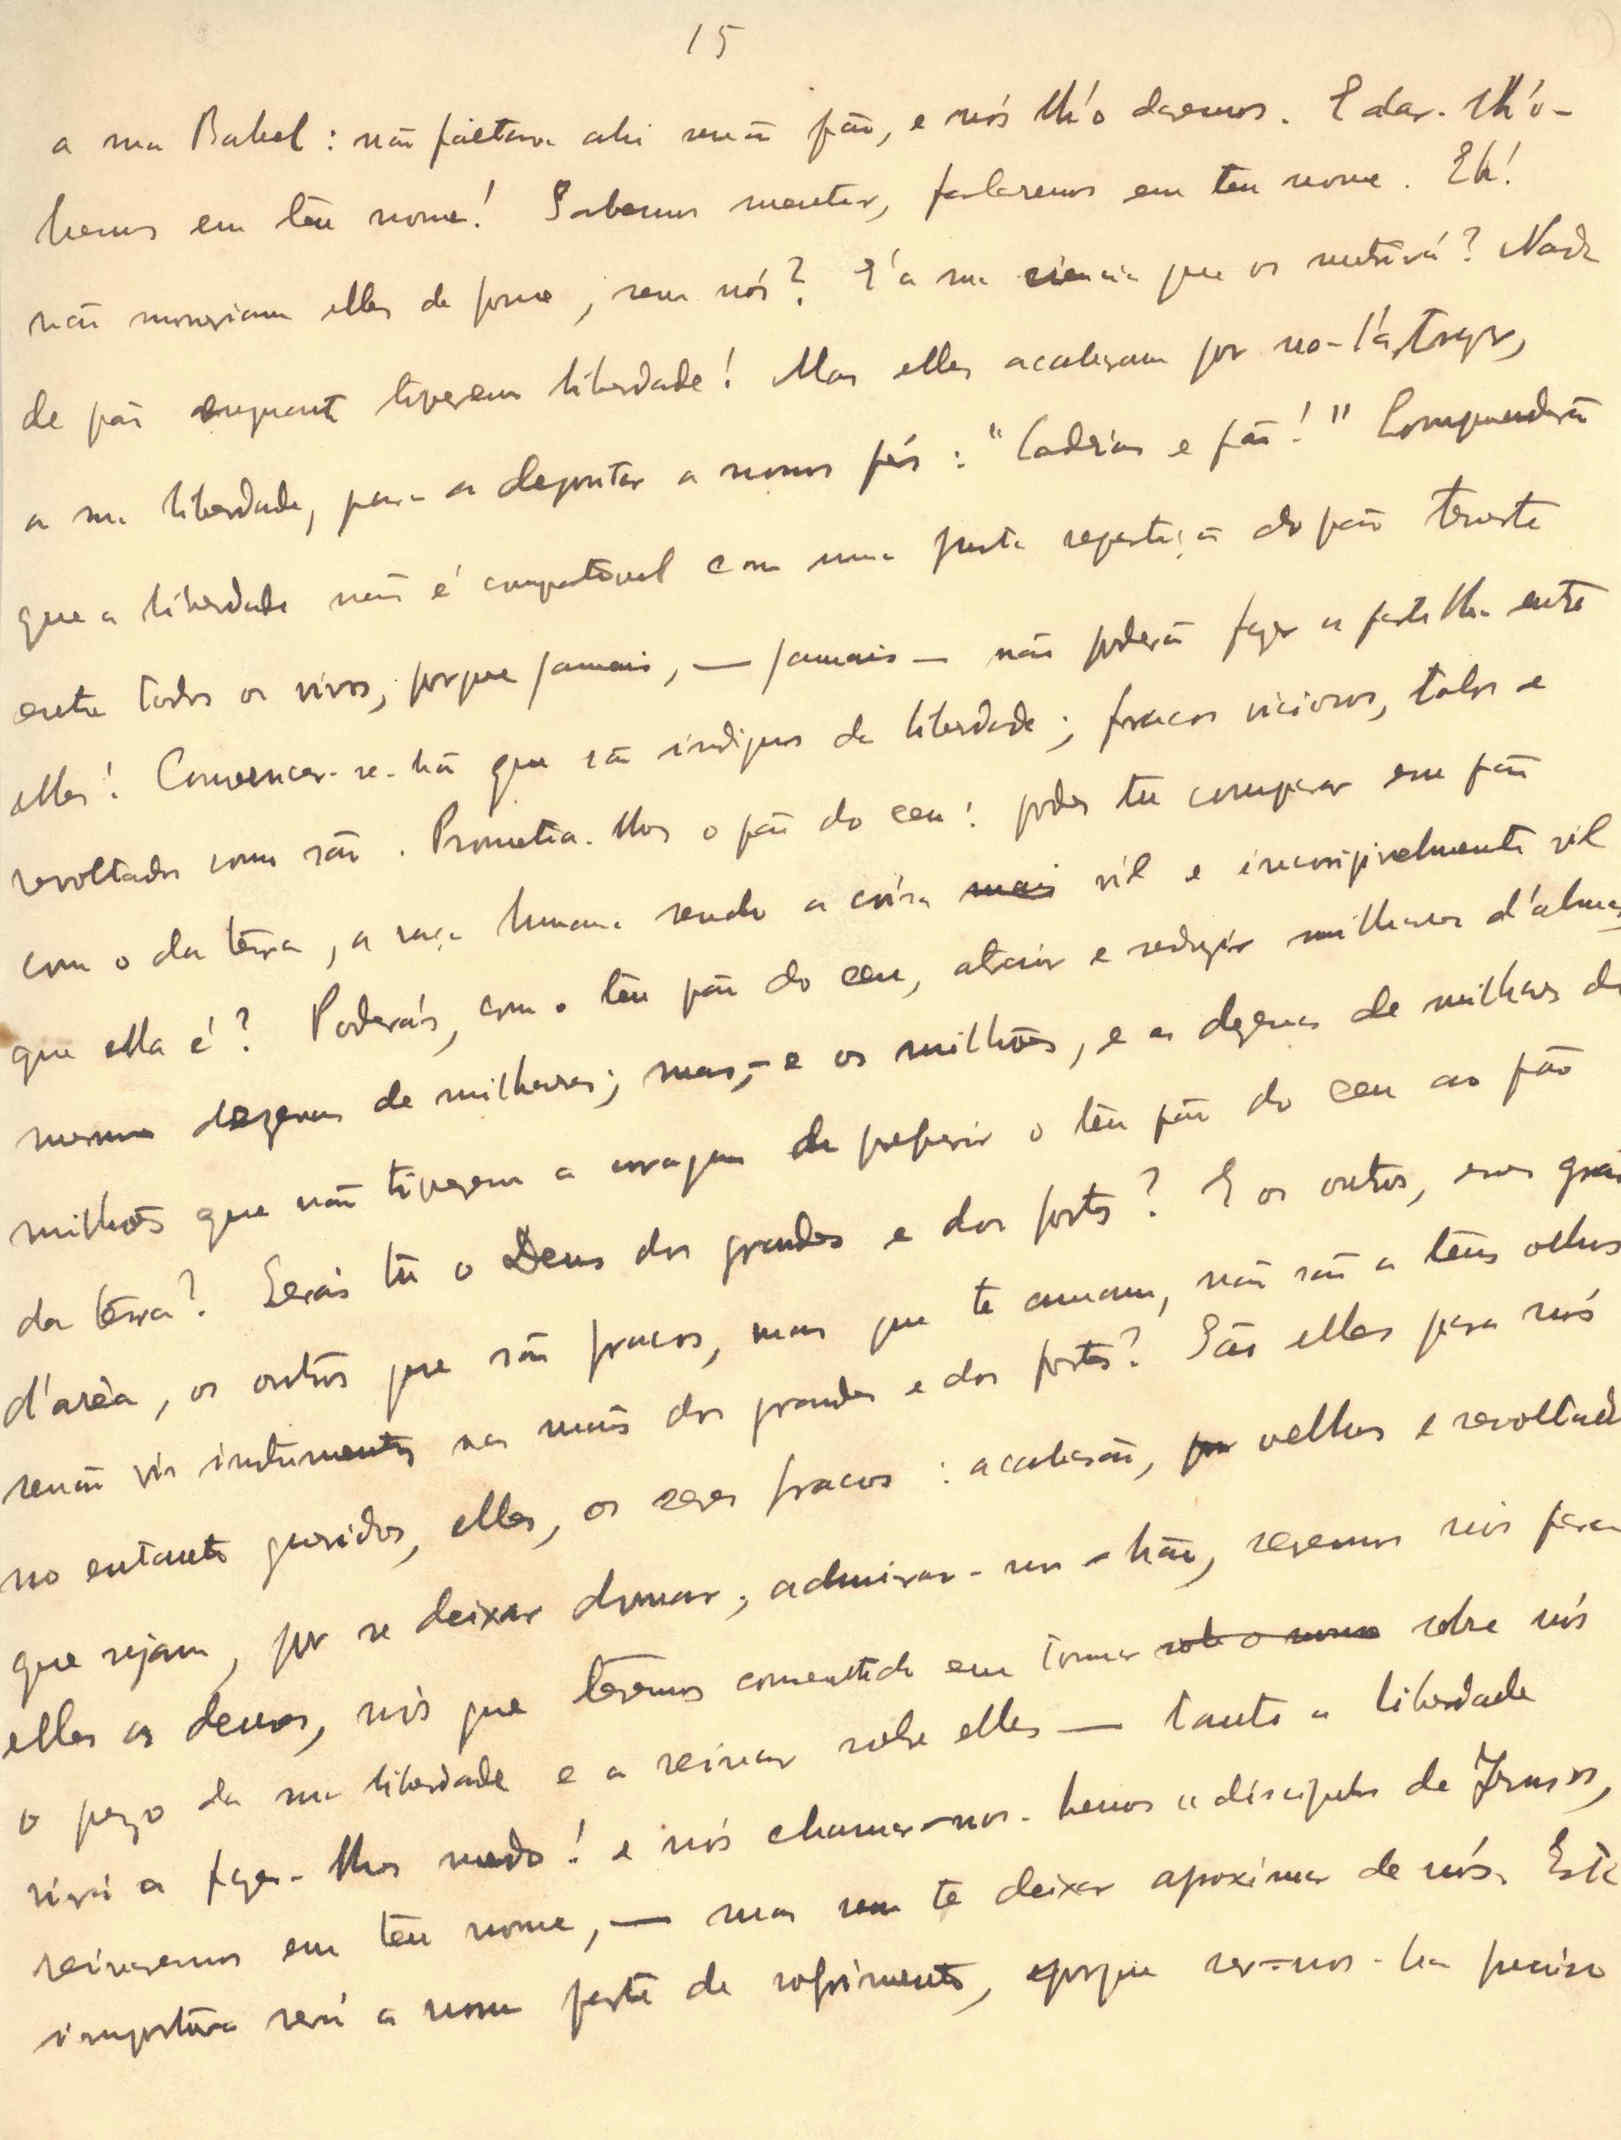 15
a sua Babel: não faltava ahi senão pão, e nós lh'o daremos. E dar-lh'o-
hemos em teu nome! Sabemos mentir, falaremos em teu nome. Eh!
não morreriam elles de fome, sem nós? E' a sua sciencia que os nutrirá? Nada
de pão enquanto tiverem liberdade! Mas elles acabaram por no-l'a trazer,
a sua liberdade, para a depositar a nossos pés: "Cadeias e pão!" Comprenderão
que a liberdade não é compativel com uma justa repartição do pão terrestre
entre todos os vivos, porque jamais, — jamais — não poderão fazer a partilha entre
elles! Convencer-se-hão que são indignos da liberdade; fracos viciosos, tolos e
revoltados como são. Prometia-lhos o pão do ceu: podes tu comparar esse pão
com o da terra, a raça humana sendo a coisa mais vil e incorrigivelmente vil
que ella é? Poderás, com o teu pão do ceu, atrair e seduzir milhares d'almas
mesmo dezenas de milhares; mas, - e os milhões, e as dezenas de milhares de
milhões que não tiverem a coragem de preferir o teu pão do ceu ao pão
da terra? Serás tu o Deus dos grandes e dos fortes? E os outros, esses grãos
d'areia, os outros que são fracos, mas que te amam, não são a teus olhos
senão vis instrumentos nas mãos dos grandes e dos fortes? São elles para nós
no entanto queridos, elles, os seres fracos: acabarão, por velhos e revoltados
que sejam, por se deixar domar; admirar-nos-hão, seremos nós para
elles os deuses, nós que teremos consentido em tomar sob o nosso sobre nós
o pezo da sua liberdade e a reinar sobre elles — tanto a liberdade
virá a fazer-lhes medo! e nós chamar-nos-hemos "discipulos de Jesus",
reinaremos em teu nome, — mas sem te deixar aproximar de nós. Esta
impostura será a nossa parte de sofrimento, porque ser-nos-ha preciso